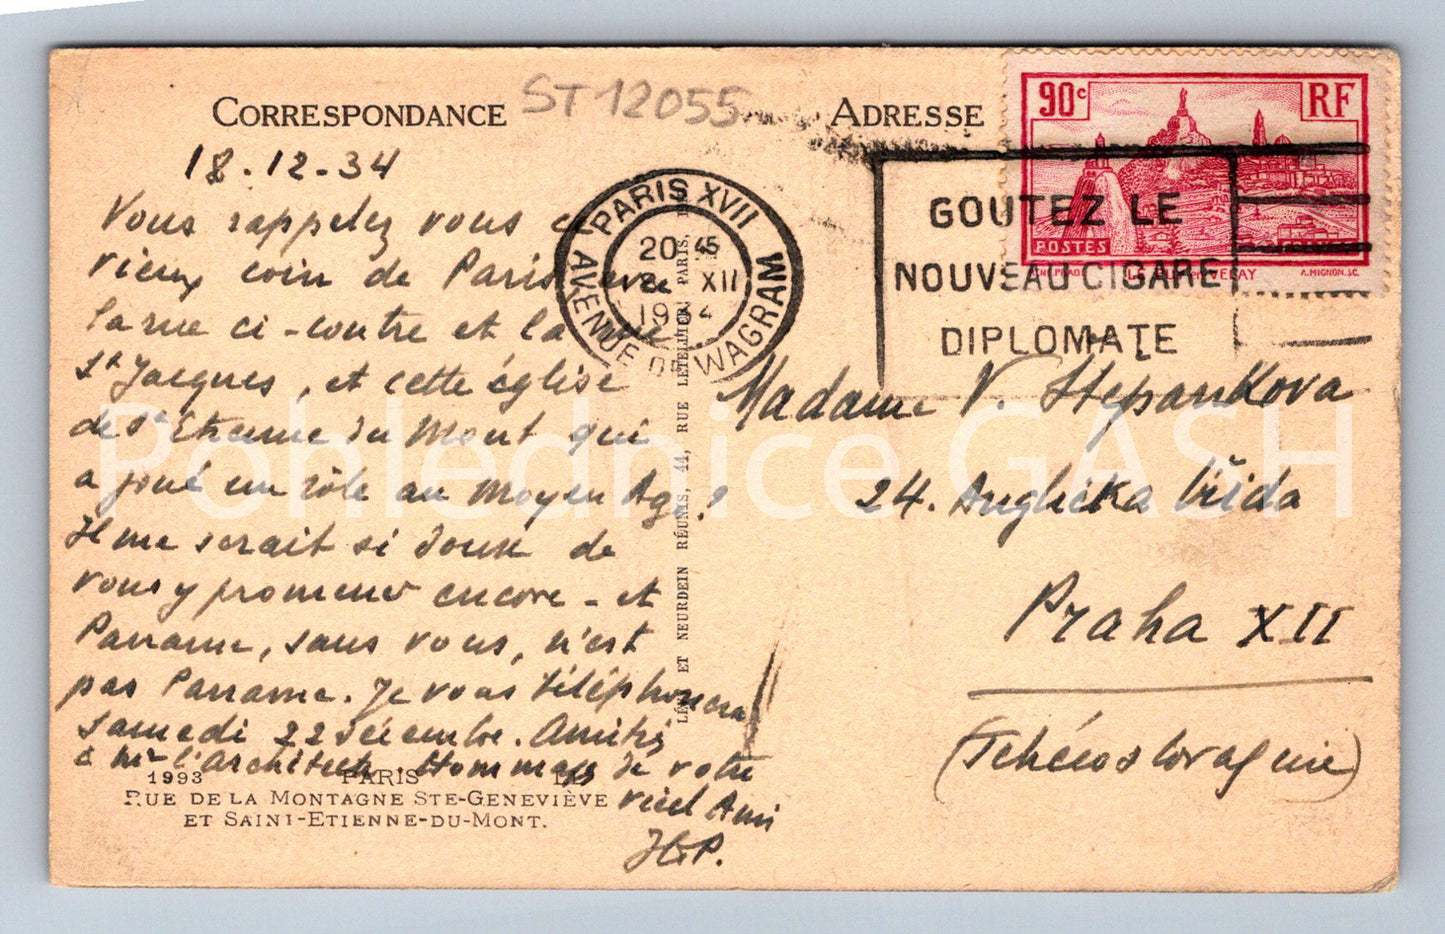 CORRESPONDANCE
ST 12055
ADRESSE
18.12.34
Vous rappelez vous ce
vieux coin de Paris avec
la rue ci-contre et la rue
St Jacques, et cette église
de St Etienne du Mont qui
a joué un rôle au Moyen Age?
Il me serait si doux de
vous y promener encore - et
Paname, sans vous, n'est
pas Paname. Je vous téléphonerai
samedi 22 décembre. Amitiés
à Mr l'Architecte. Hommages de votre
vieil Ami
H.P.
1993 PARIS
RUE DE LA MONTAGNE STE-GENEVIÈVE
ET SAINT-ETIENNE-DU-MONT.
LÉVY ET NEURDEIN RÉUNIS, 44, RUE LETELLIER, PARIS,
PARIS XVII
20 45
XII
1934
AVENUE DE WAGRAM
GOUTEZ LE
NOUVEAU CIGARE
DIPLOMATE
90c
RF
POSTES
LE PUY en VELAY
A. MIGNON. SC.
Madame V. Stepankova
24. Anglicka třida
Praha XII
(Tchécoslovaquie)
Pohlednice GASH